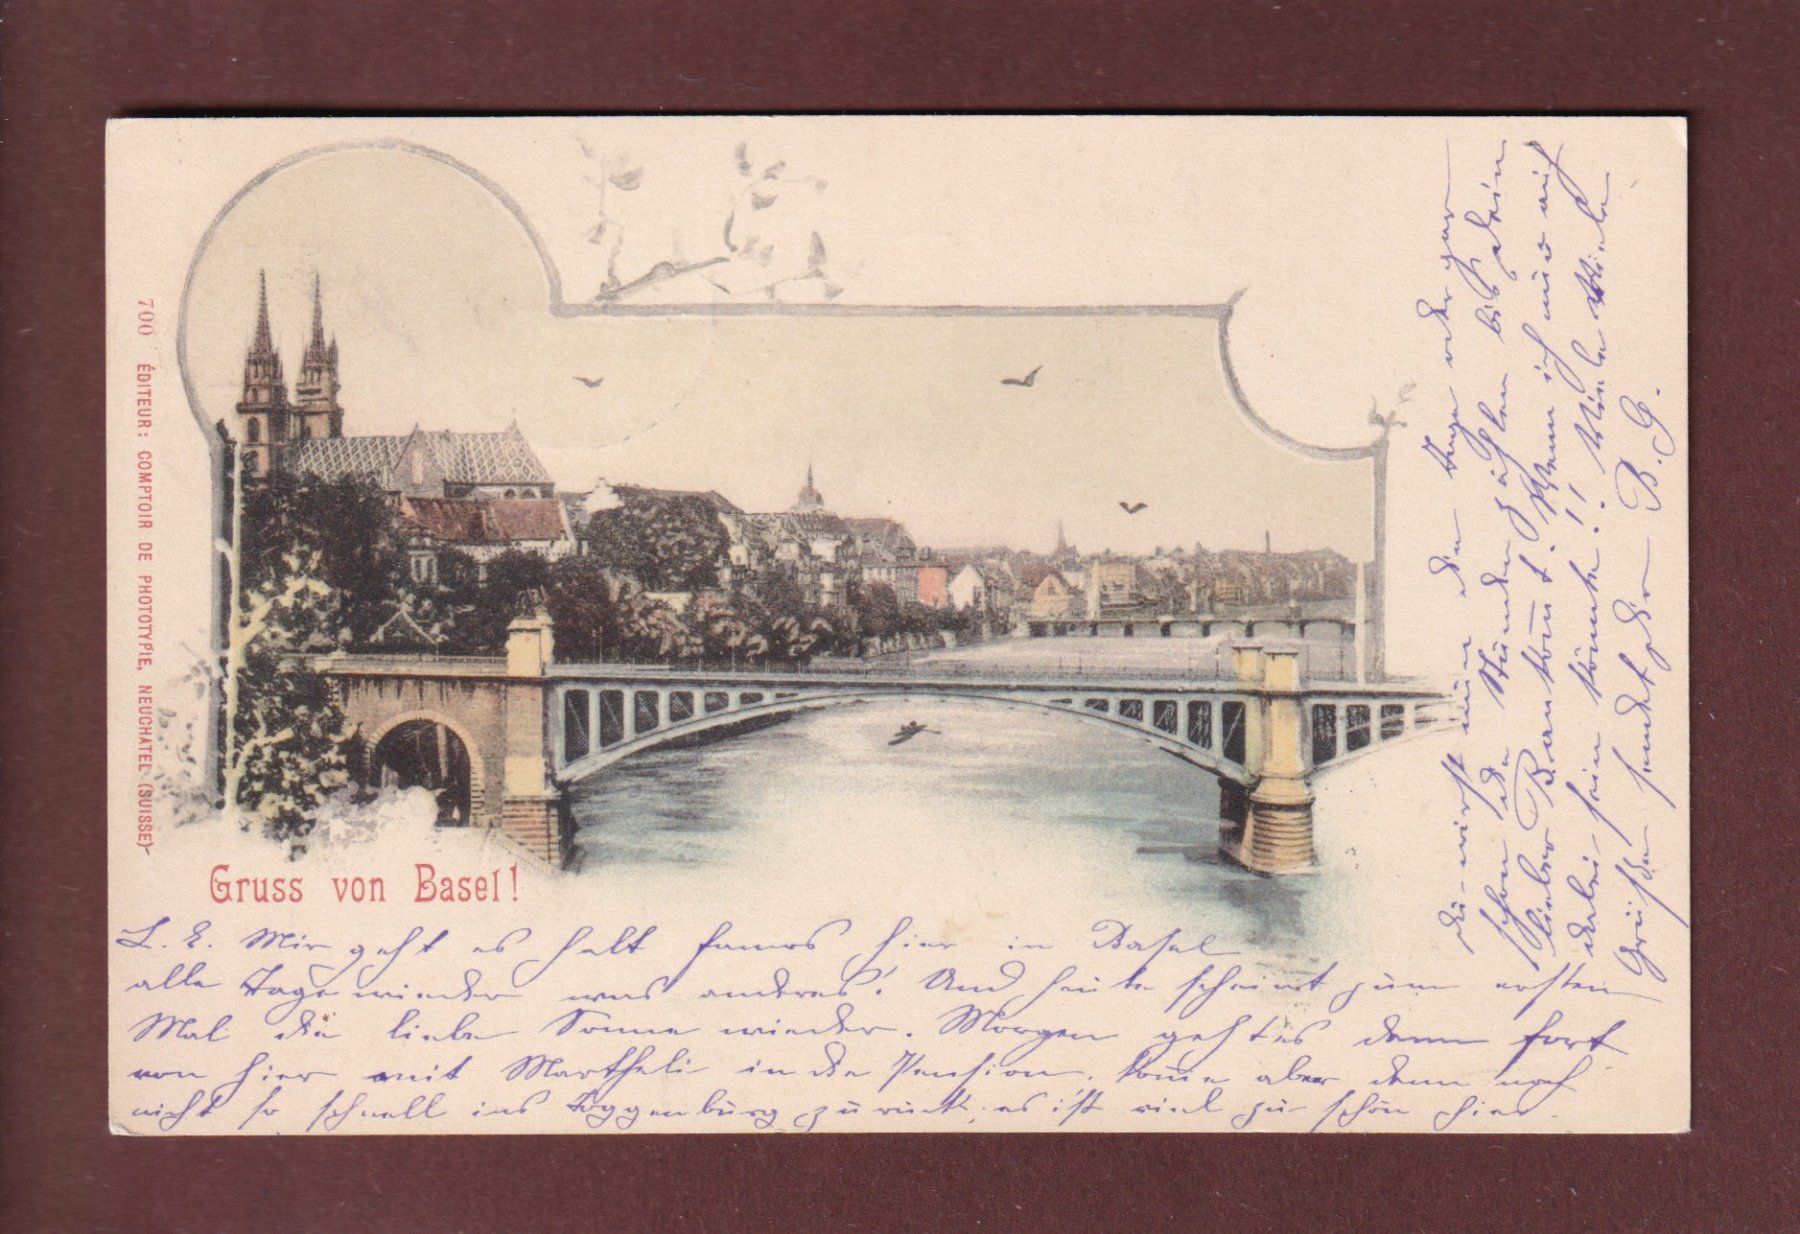 700 ÉDITEUR: COMPTOIR DE PHOTOTYPIE, NEUCHATEL (SUISSE)
Gruss von Basel!
L. E. Mir geht es halt famos hier in Basel
alle Tage wieder was anderes! Und heute scheint zum ersten
Mal die liebe Sonne wieder. Morgen geht es dann fort
von hier mit Martheli in die Pension, kom̅e aber dann noch
nicht so schnell ins Toggenburg zurück; es ist viel zu schön hier.
Du wirst nun die Tage oder gar
schon die Stunden zählen bis dein
lieber Bran kom̅t. Wenn ich nur auch
dabei sein könnte!! Viele Viele
Grüsse sendet dir B. G.